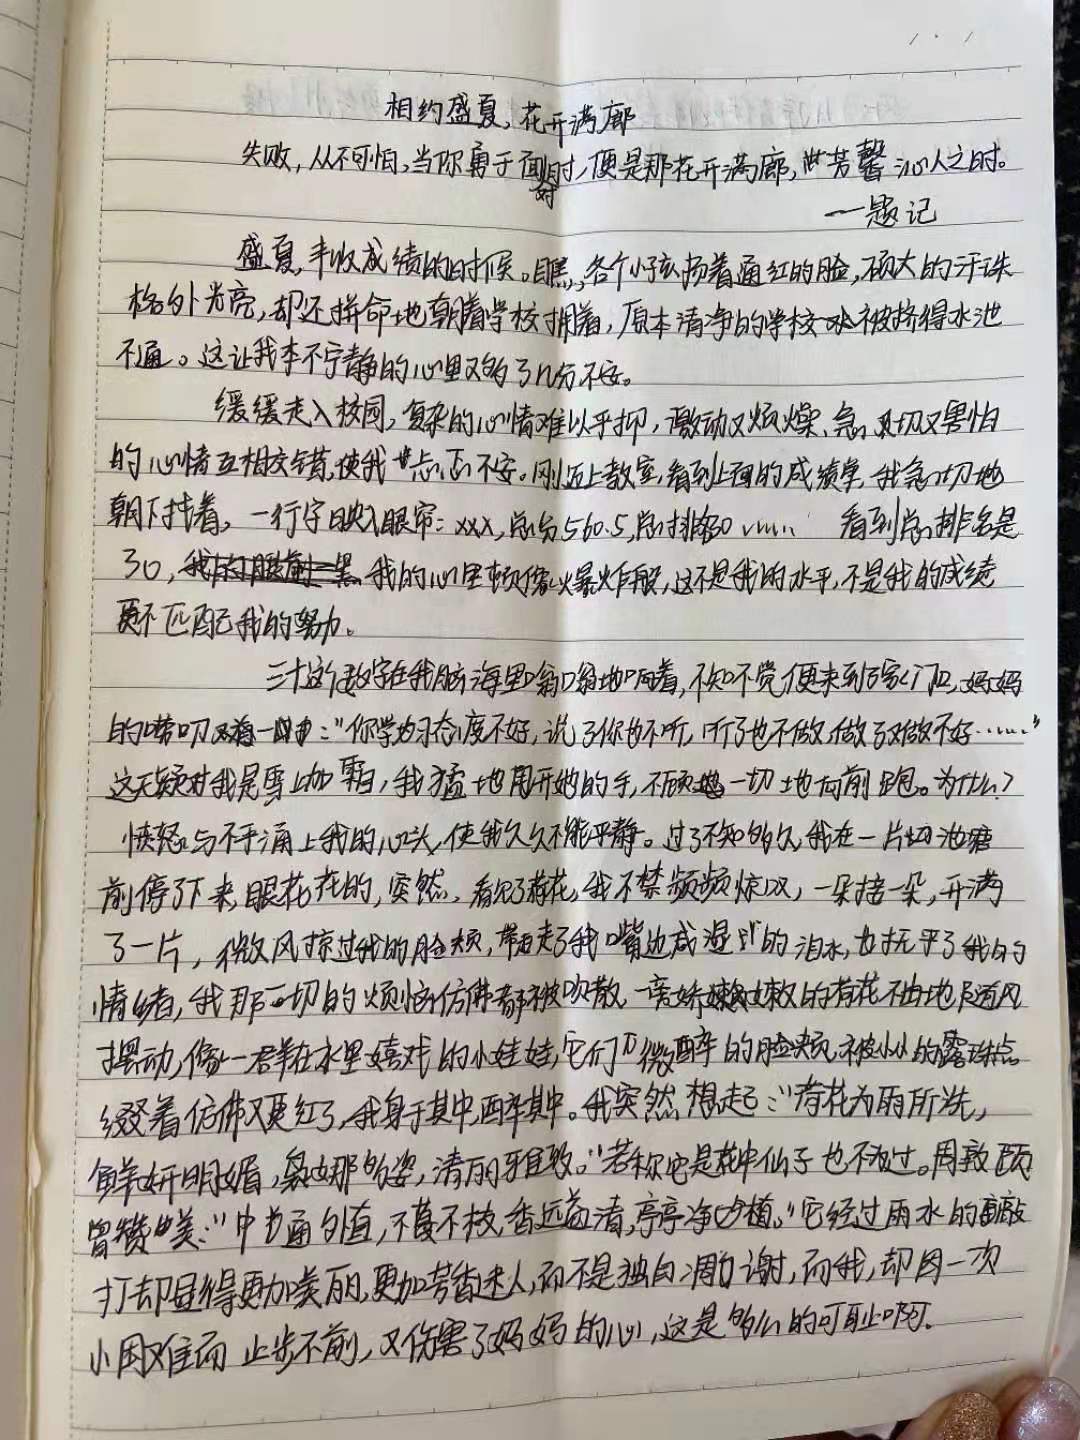 相约盛夏,花开满廊
失败,从不可怕,当你勇于面对时,便是那花开满廊,芳馨沁人之时。
一题记
盛夏,丰收成绩的时候。瞧,各个小孩扬着通红的脸,硕大的汗珠
格外光亮,却还拼命地朝着学校拥着,原本清净的学校被挤得水池
不通。这让我本不宁静的心里又多了几分不安。
缓缓走入校园,复杂的心情难以平抑,激动又烦燥、急切又害怕
的心情互相交错,使我忐忑不安。刚迈上教室,看到上面的成绩单,我急切地
朝下找着,一行字映入眼帘:xxx,总分560.5,总排名30…… 看到总排名是
30,我的心里顿像火爆炸般,这不是我的水平,不是我的成绩
更不匹配我的努力。
三十这个数字在我脑海里嗡嗡地响着,不知不觉便来到家门口,妈妈
的唠叨:“你学习态度不好,说了你也不听,听了也不做,做了又做不好……”
这无疑对我是雪上加霜,我猛地甩开她的手,不顾一切地向前跑。为什么?
愤怒与不干涌上我的心头,使我久久不能平静。过了不知多久,我在一片池塘
前停了下来,眼花花的,突然,看见了荷花,我不禁频频惊叹,一朵接一朵,开满
了一片,微风掠过我的脸颊,带走了我嘴边咸湿的泪水,也抚平了我的
情绪,我那一切的烦恼仿佛都被吹散,嫩的荷花不由地随风
摆动,像一群在水里嬉戏的小娃娃,它们微醉的脸颊被小小的露珠点
缀着仿佛又更红了,我身于其中,醉其中。我突然想起:“荷花为雨所洗,
鲜妍明媚,袅娜多姿,清丽雅致。”若称它是花中仙子也不为过。周敦颐
曾赞美:“中通外值,不蔓不枝,香远益清,亭亭净植。”它经过雨水的敲
打却显得更加美丽,更加芳香迷人,而不是独自凋谢,而我,却因一次
小困难而止步不前,又伤害了妈妈的心,这是多么的可耻啊。